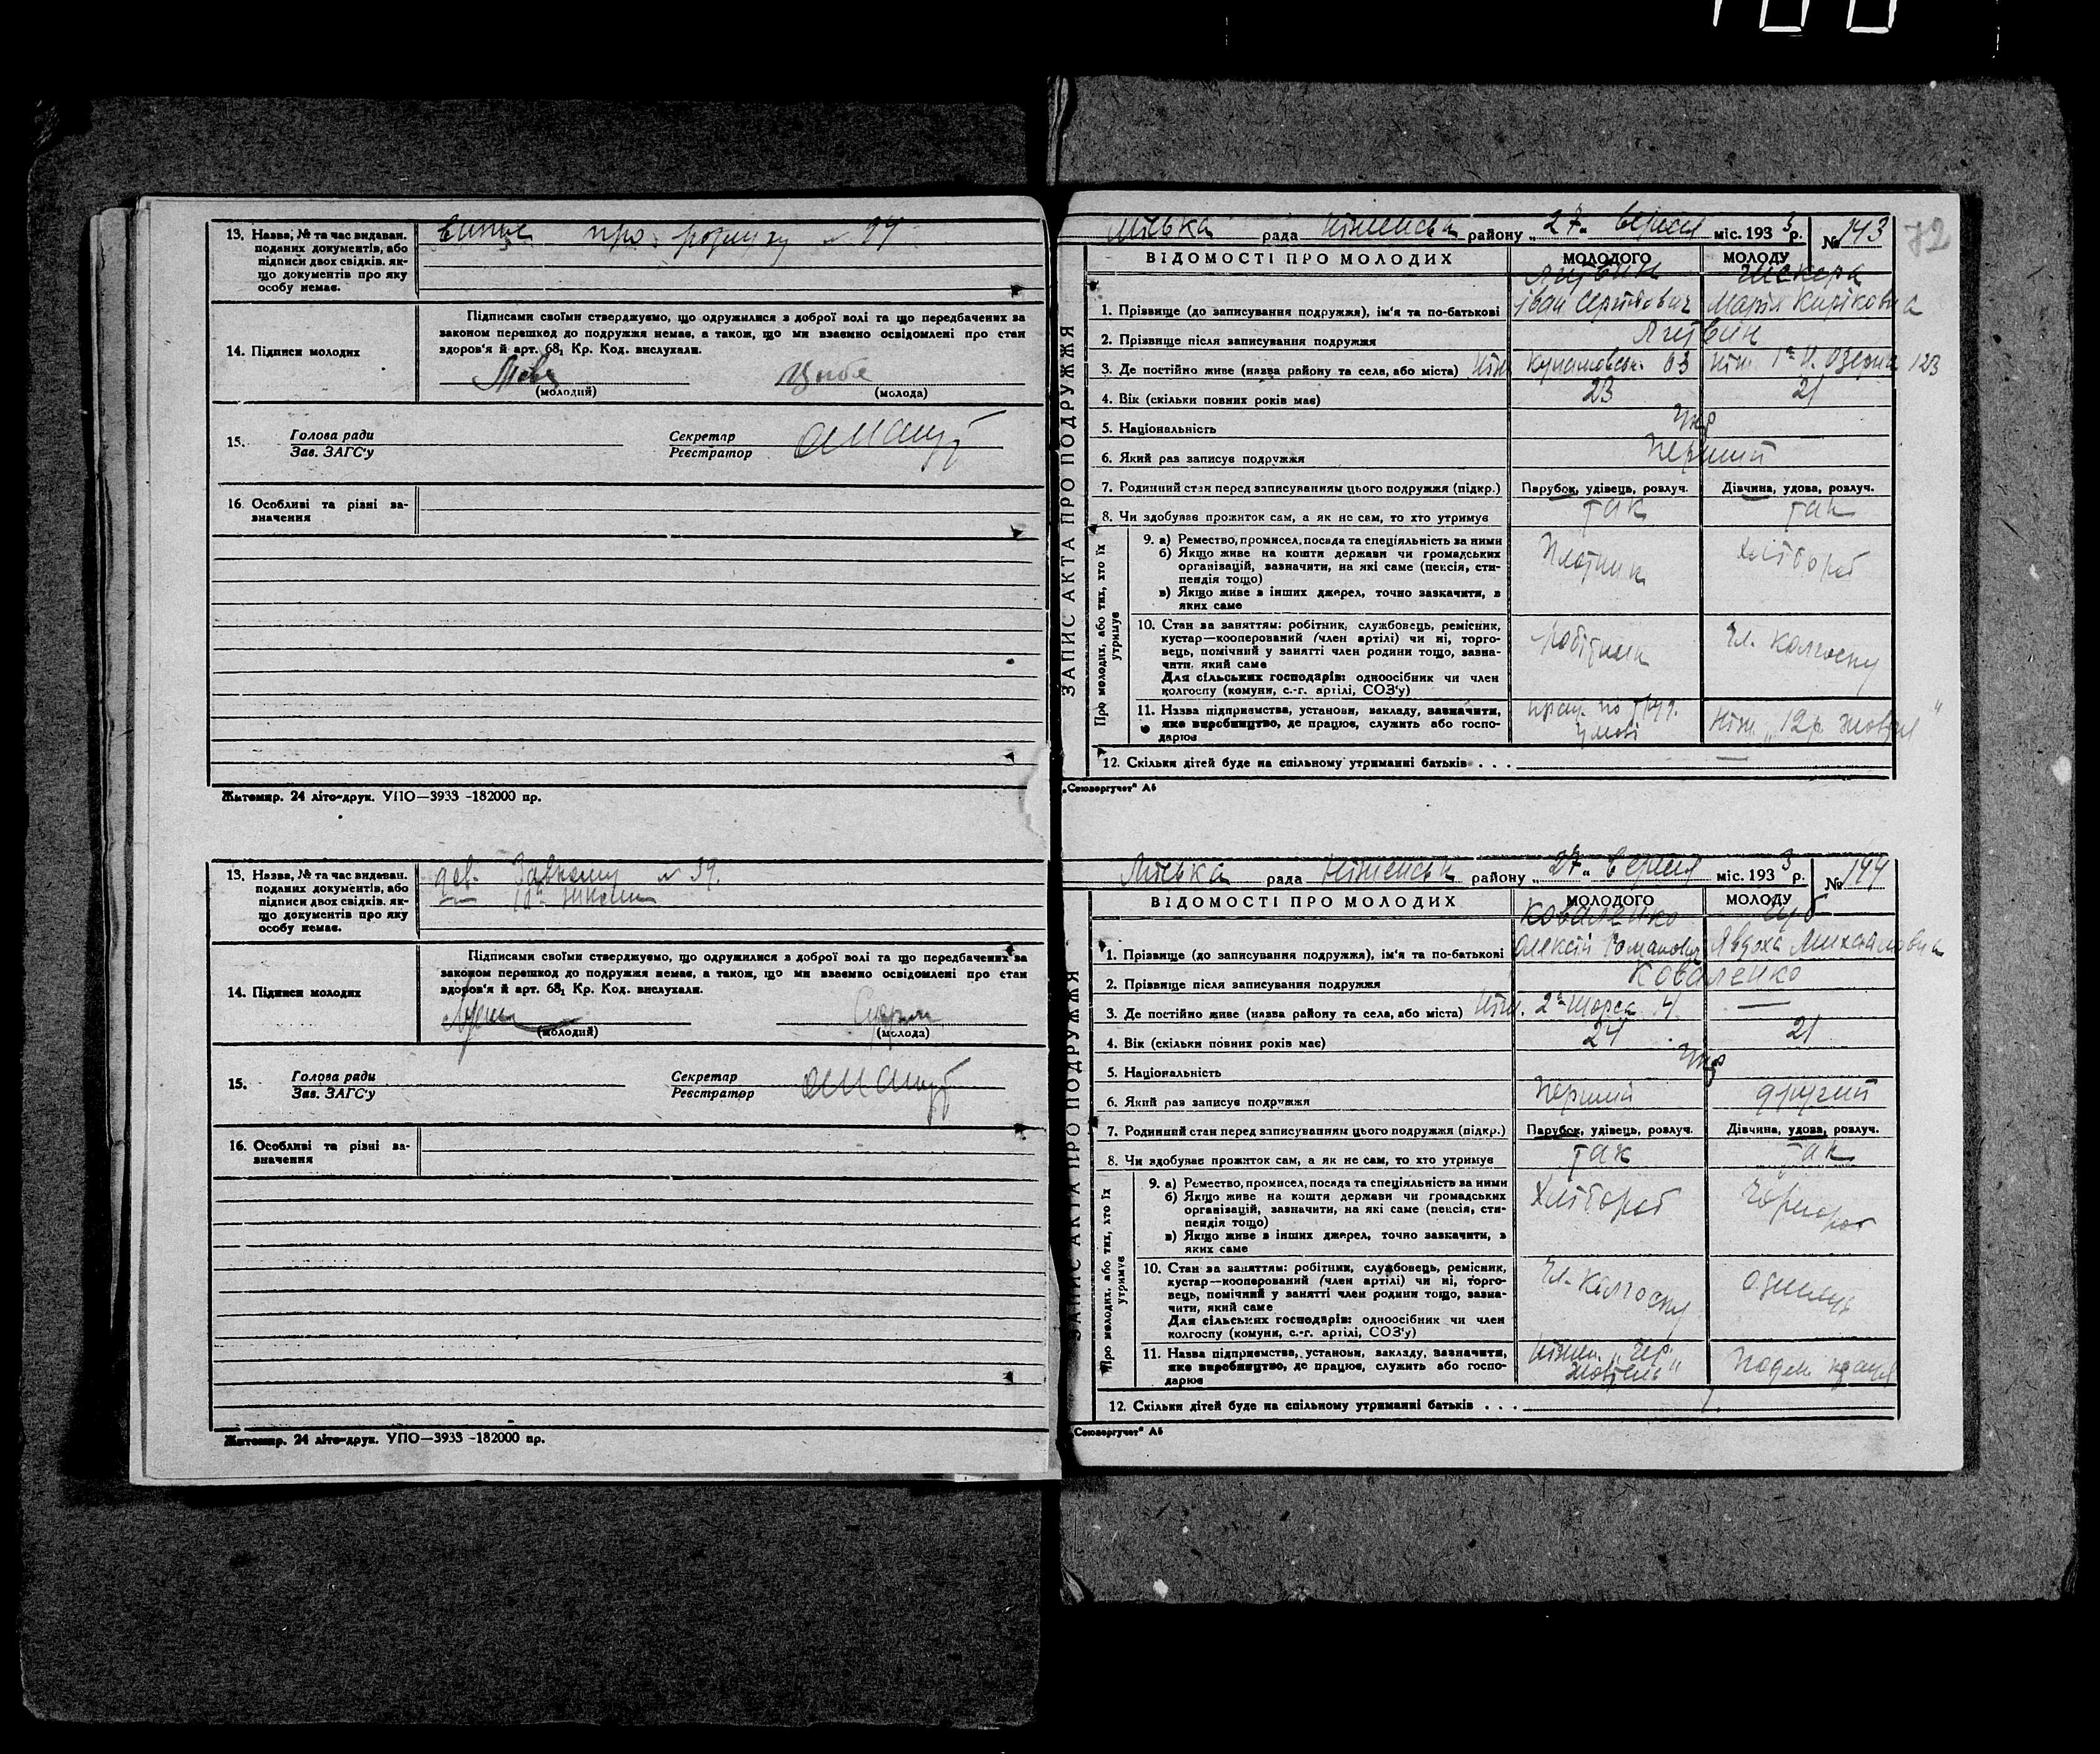 13. Назва, № та час видаван.
поданих документів, або
підписи двох свідків, як-
що документів про яку
особу немає.
про 
14. Підписи молодих
Підписами своїми стверджуємо, що одружилися з доброї волі та що передбачених за
законом перешкод до подружжя немає, а також, що ми взаємно освідомлені про стан
здоров'я й арт. 68₁ Кр. Код. вислухали.
(молодий)
(молода)
15.
Голова ради
Зав. ЗАГС'у
Секретар
Реєстратор
16. Особливі та різні за-
значення
Житомир. 24 літо-друк. УПО—3933 -182000 пр.
13. Назва, № та час видаван.
поданих документів, або
підписи двох свідків, як-
що документів про яку
особу немає.
№ 39.
14. Підписи молодих
Підписами своїми стверджуємо, що одружилися з доброї волі та що передбачених за
законом перешкод до подружжя немає, а також, що ми взаємно освідомлені про стан
здоров'я й арт. 68₁ Кр. Код. вислухали.
(молодий)
(молода)
15.
Голова ради
Зав. ЗАГС'у
Секретар
Реєстратор
16. Особливі та різні за-
значення
Житомир. 24 літо-друк. УПО—3933 -182000 пр.
72
ЗАПИС АКТА ПРО ПОДРУЖЖЯ
Міська рада Ніженськ району „27" вересня міс. 1933 р. № 143
ВІДОМОСТІ ПРО МОЛОДИХ МОЛОДОГО МОЛОДУ
Литвин
1. Прізвище (до записування подружжя), ім'я та по-батькові Іван Сергійович Марія Кирiковна
2. Прізвище після записування подружжя Литвин
3. Де постійно живе (назва району та села, або міста) Ніж. 63 Ніж. 123
4. Вік (скільки повних років має) 23 21
5. Національність Укр
6. Який раз записує подружжя Перший
7. Родинний стан перед записуванням цього подружжя (підкр.) Парубок, удівець, розлуч. Дівчина, удова, розлуч.
8. Чи здобував прожиток сам, а як не сам, то хто утримує так так
Про молодих, або тих, хто їх утримує
9. а) Ремество, промисел, посада та спеціяльність за ними
б) Якщо живе на кошти держави чи громадських
організацій, зазначити, на які саме (пенсія, сти-
пендія тощо)
в) Якщо живе з інших джерел, точно зазначити, з
яких саме
Плотник Хлібороб
10. Стан за заняттям: робітник, службовець, ремісник,
кустар—кооперований (член артілі) чи ні, торго-
вець, помічний у занятті член родини тощо, зазна-
чити, який саме
Для сільських господарів: одноосібник чи член
колгоспу (комуни, с.-г. артілі, СОЗ'у)
робітник Чл. колгоспу
11. Назва підприємства, установи, закладу, зазначити,
яке виробництво, де працює, служить або госпо-
дарює
прац. по труд. умові Ніж. „12 р. жовтня"
12. Скільки дітей буде на спільному утриманні батьків . . . —
„Союзоргучет" А6
ЗАПИС АКТА ПРО ПОДРУЖЖЯ
Міська рада Ніженськ району „27" вересня міс. 1933 р. № 144
ВІДОМОСТІ ПРО МОЛОДИХ МОЛОДОГО МОЛОДУ
Коваленко
1. Прізвище (до записування подружжя), ім'я та по-батькові Олексій Романович Явдоха Михайловна
2. Прізвище після записування подружжя Коваленко
3. Де постійно живе (назва району та села, або міста) Ніж. 2а Щорса 4 —
4. Вік (скільки повних років має) 24 21
5. Національність Укр
6. Який раз записує подружжя Перший другий
7. Родинний стан перед записуванням цього подружжя (підкр.) Парубок, удівець, розлуч. Дівчина, удова, розлуч.
8. Чи здобував прожиток сам, а як не сам, то хто утримує так так
Про молодих, або тих, хто їх утримує
9. а) Ремество, промисел, посада та спеціяльність за ними
б) Якщо живе на кошти держави чи громадських
організацій, зазначити, на які саме (пенсія, сти-
пендія тощо)
в) Якщо живе з інших джерел, точно зазначити, з
яких саме
Хлібороб Чорнороб
10. Стан за заняттям: робітник, службовець, ремісник,
кустар—кооперований (член артілі) чи ні, торго-
вець, помічний у занятті член родини тощо, зазна-
чити, який саме
Для сільських господарів: одноосібник чи член
колгоспу (комуни, с.-г. артілі, СОЗ'у)
Чл. колгоспу
11. Назва підприємства, установи, закладу, зазначити,
яке виробництво, де працює, служить або госпо-
дарює
Ніжин. „Чер. жовтень" Поден. праця
12. Скільки дітей буде на спільному утриманні батьків . . .
„Союзоргучет" А6